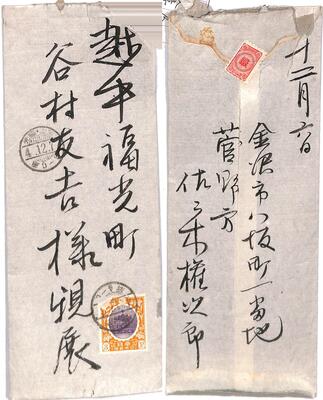 越中福光町
谷村友吉様
親展
4.12.
十二月六日
金沢市八坂町一番地
菅野方
佐々木権次郎